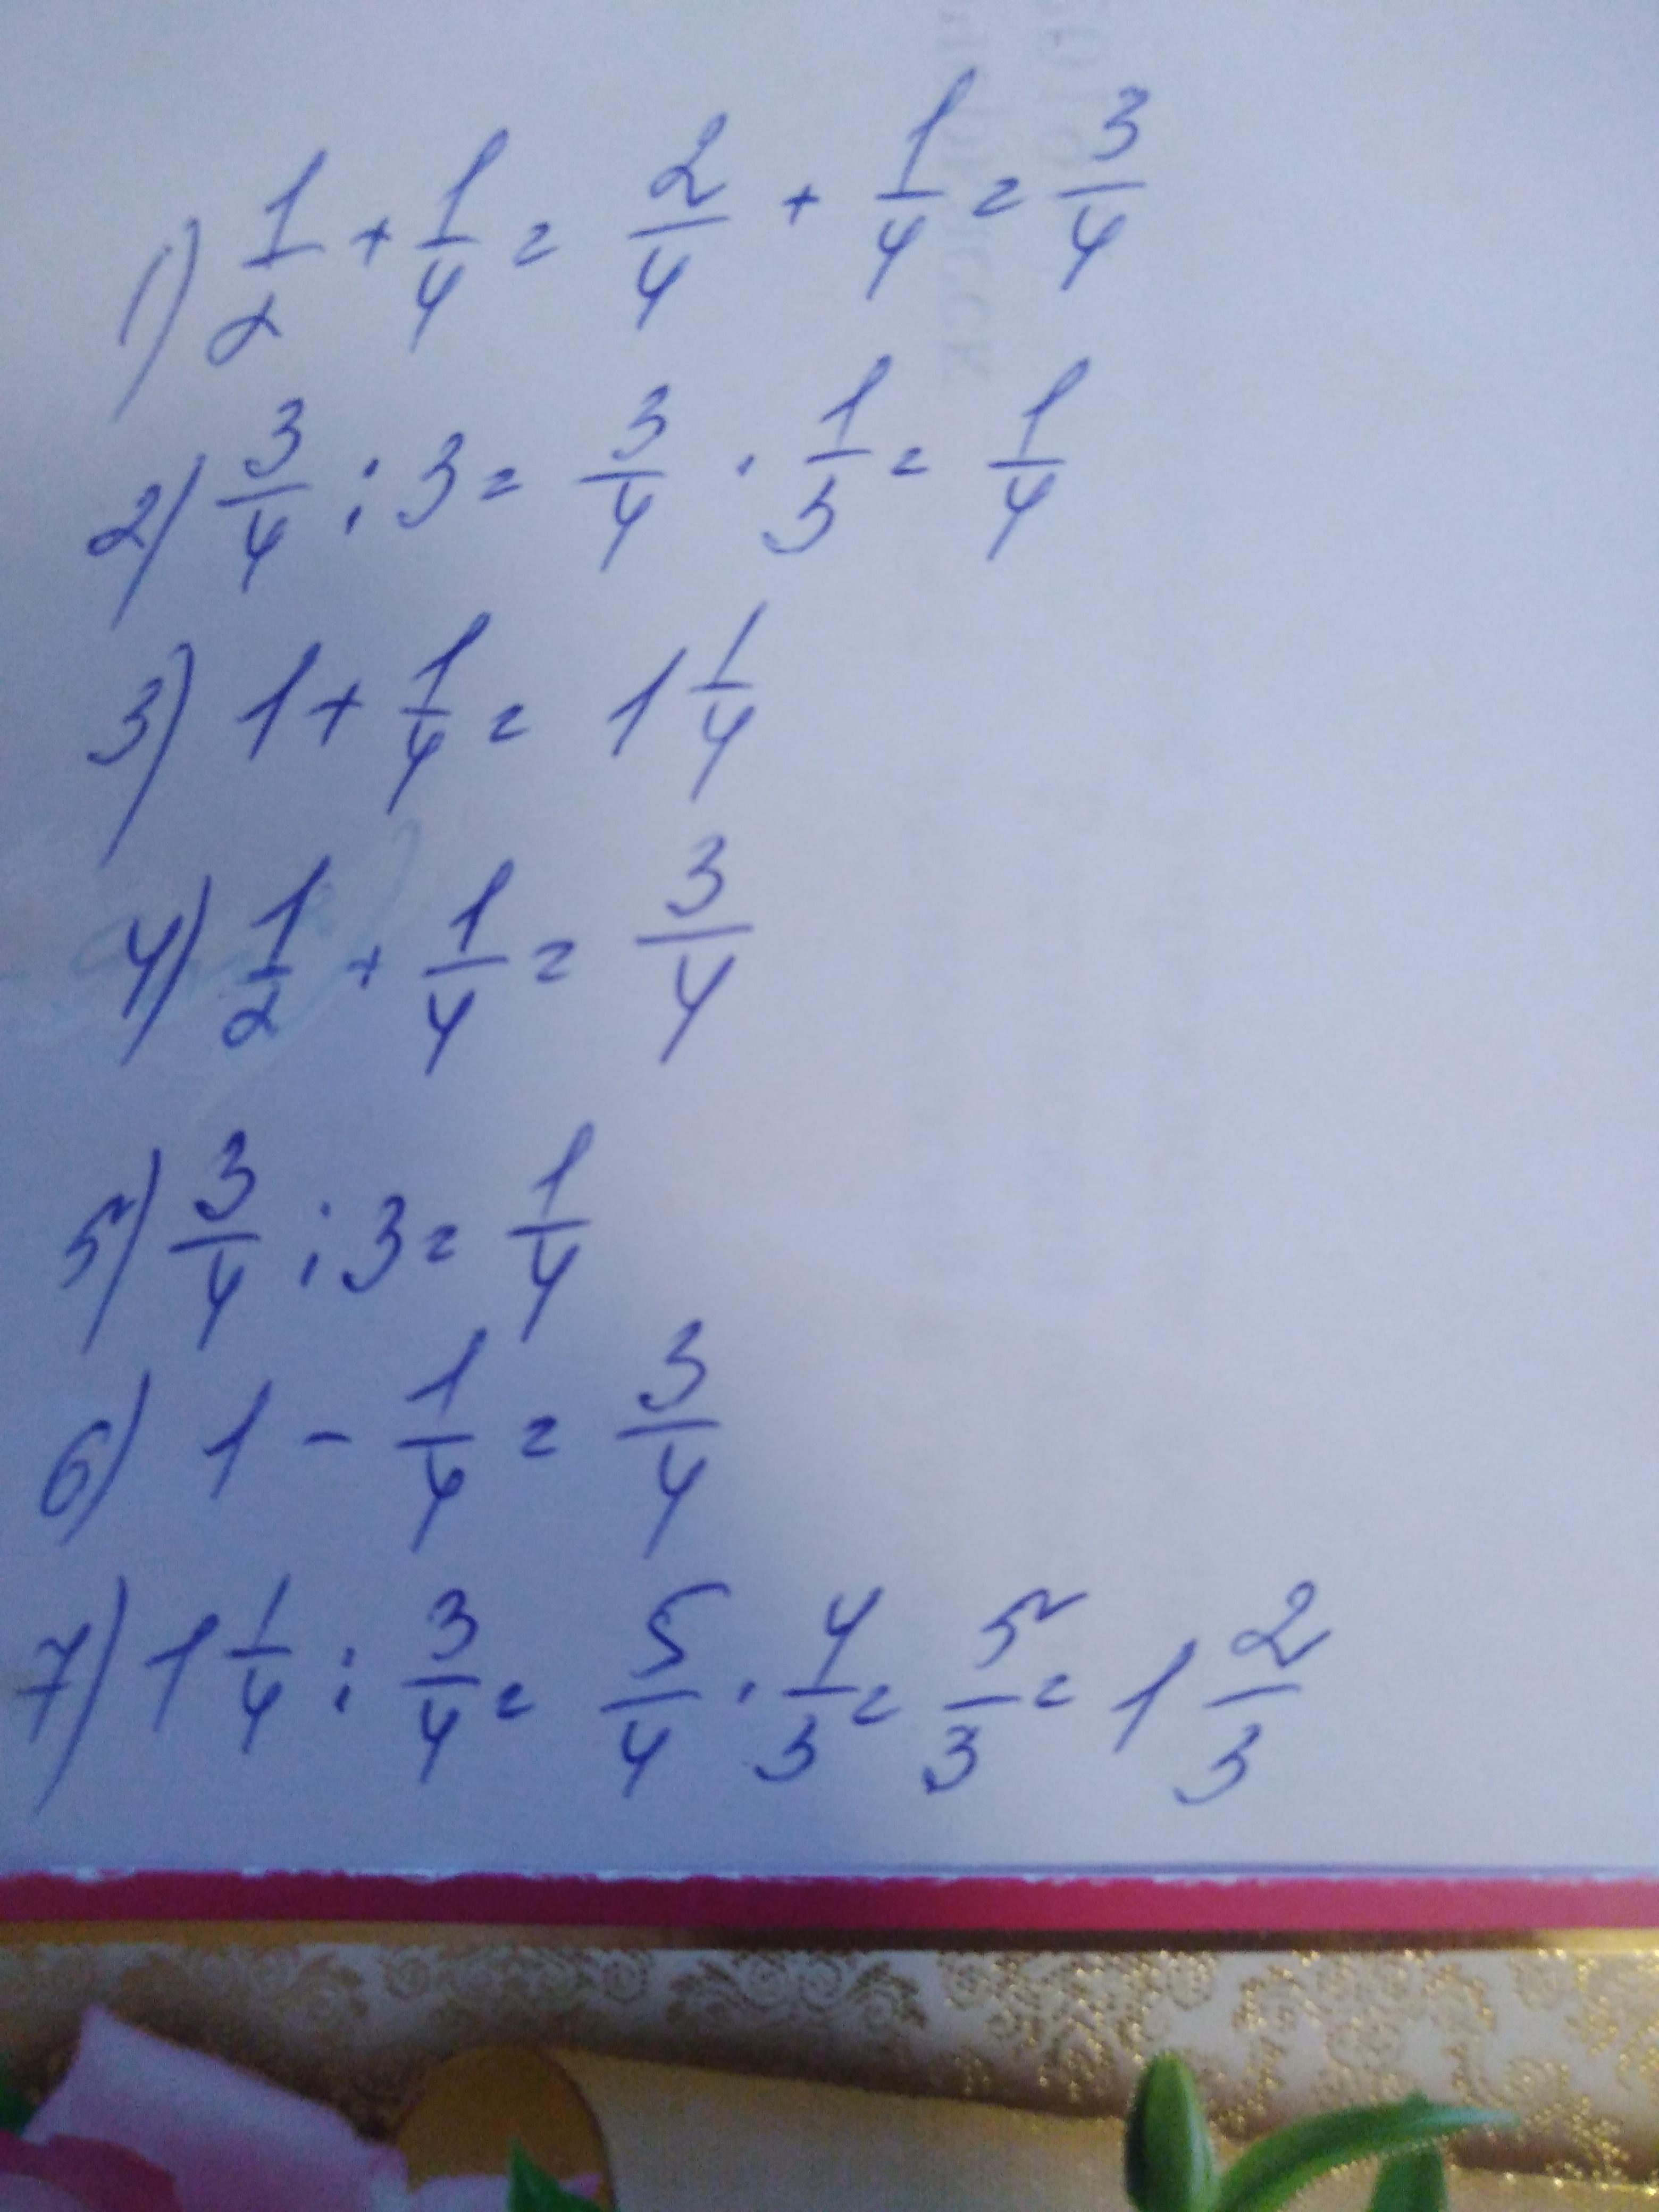 1) 1/2 + 1/4 = 2/4 + 1/4 = 3/4
2) 3/4 : 3 = 3/4 · 1/3 = 1/4
3) 1 + 1/4 = 1 1/4
4) 1/2 + 1/4 = 3/4
5) 3/4 : 3 = 1/4
6) 1 - 1/4 = 3/4
7) 1 1/4 : 3/4 = 5/4 · 4/3 = 5/3 = 1 2/3